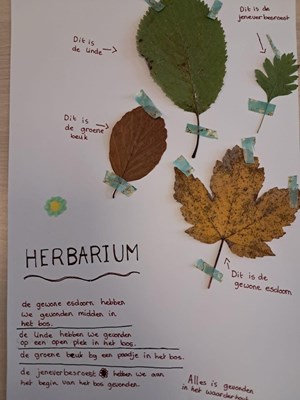 Dit is
de jeneverbesroest
Dit is
de linde
Dit is
de groene
beuk
HERBARIUM
Dit is
de gewone esdoorn
de gewone esdoorn hebben
we gevonden midden in
het bos.
de linde hebben we gevonden
op een open plek in het bos.
de groene beuk bij een paadje in het bos.
de jeneverbesroest hebben we aan
het begin van het bos gevonden.
Alles is gevonden
in het waarderhout